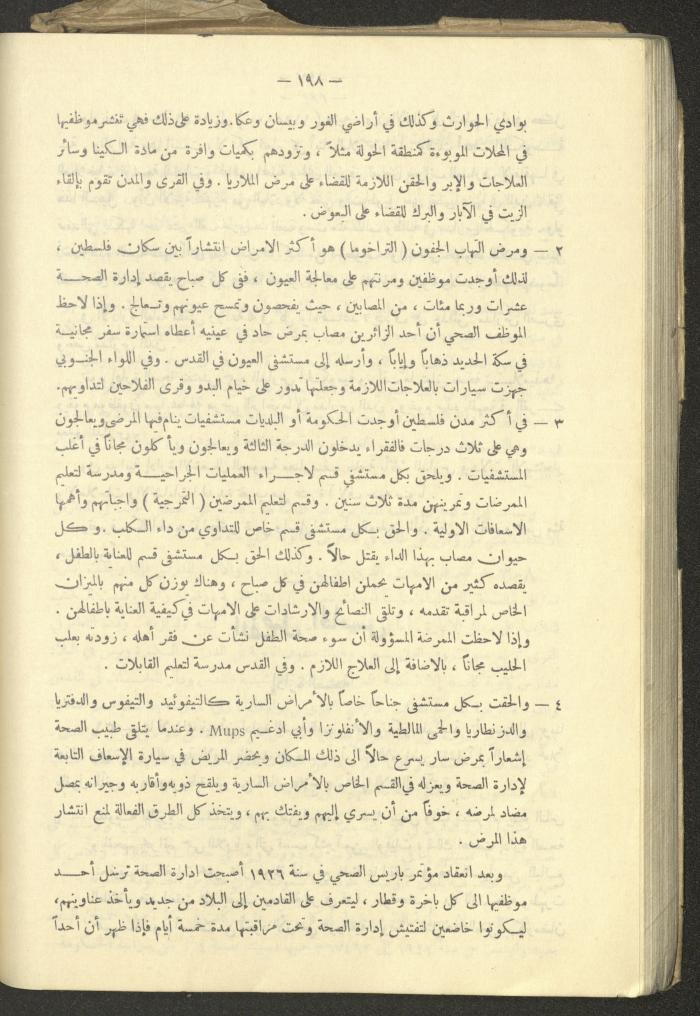 — ١٩٨ —
بوادي الحوارث وكذلك في أراضي الغور وبيسان وعكا. وزيادة على ذلك فهي تنشر موظفيها
في المحلات الموبوءة كمنطقة الحولة مثلاً ، وتزودهم بكميات وافرة من مادة الكينا وسائر
العلاجات والإبر والحقن اللازمة للقضاء على مرض الملاريا . وفي القرى والمدن تقوم بإلقاء
الزيت في الآبار والبرك للقضاء على البعوض .
٢ — ومرض التهاب الجفون ( التراخوما ) هو أكثر الامراض انتشاراً بين سكان فلسطين ،
لذلك أوجدت موظفين ومرنتهم على معالجة العيون ، ففي كل صباح يقصد إدارة الصحة
عشرات وربما مئات ، من المصابين ، حيث يفحصون وتمسح عيونهم وتعالج . وإذا لاحظ
الموظف الصحي أن أحد الزائرين مصاب بمرض حاد في عينيه أعطاه استمارة سفر مجانية
في سكة الحديد ذهاباً وإياباً ، وأرسله إلى مستشفى العيون في القدس . وفي اللواء الجنوبي
جهزت سيارات بالعلاجات اللازمة وجعلتها تدور على خيام البدو وقرى الفلاحين لتداويهم.
٣ — في أكثر مدن فلسطين أوجدت الحكومة أو البلديات مستشفيات ينام فيها المرضى ويعالجون
وهي على ثلاث درجات فالفقراء يدخلون الدرجة الثالثة ويعالجون ويأكلون مجاناً في أغلب
المستشفيات . ويلحق بكل مستشفى قسم لاجراء العمليات الجراحية ومدرسة لتعليم
الممرضات وتمرينهن مدة ثلاث سنين . وقسم لتعليم الممرضين ( التمرجية ) واجباتهم وأهمها
الاسعافات الاولية . والحق بكل مستشفى قسم خاص للتداوي من داء الكلب . وكل
حيوان مصاب بهذا الداء يقتل حالاً . وكذلك الحق بكل مستشفى قسم للعناية بالطفل ،
يقصده كثير من الامهات يحملن اطفالهن في كل صباح ، وهناك يوزن كل منهم بالميزان
الخاص لمراقبة تقدمه ، وتلقى النصائح والارشادات على الامهات في كيفية العناية باطفالهن .
وإذا لاحظت الممرضة المسؤولة أن سوء صحة الطفل نشأت عن فقر أهله ، زودته بعلب
الحليب مجاناً ، بالاضافة إلى العلاج اللازم . وفي القدس مدرسة لتعليم القابلات .
٤ — والحقت بكل مستشفى جناحاً خاصاً بالأمراض السارية كالتيفوئيد والتيفوس والدفتريا
والدزنطاريا والحمى المالطية والأنفلونزا وأبي ادغيم Mups . وعندما يتلقى طبيب الصحة
إشعاراً بمرض سار يسرع حالاً الى ذلك المسكان ويحضر المريض في سيارة الإسعاف التابعة
لإدارة الصحة ويعزله في القسم الخاص بالأمراض السارية ويلقح ذويه وأقاربه وجيرانه بمصل
مضاد لمرضه ، خوفاً من أن يسري إليهم ويفتك بهم ، ويتخذ كل الطرق الفعالة لمنع انتشار
هذا المرض .
وبعد انعقاد مؤتمر باريس الصحي في سنة ١٩٢٦ أصبحت ادارة الصحة ترسل أحد
موظفيها الى كل باخرة وقطار ، ليتعرف على القادمين إلى البلاد من جديد ويأخذ عناوينهم،
ليكونوا خاضعين لتفتيش إدارة الصحة وتحت مراقبتها مدة خمسة أيام فإذا ظهر أن أحداً